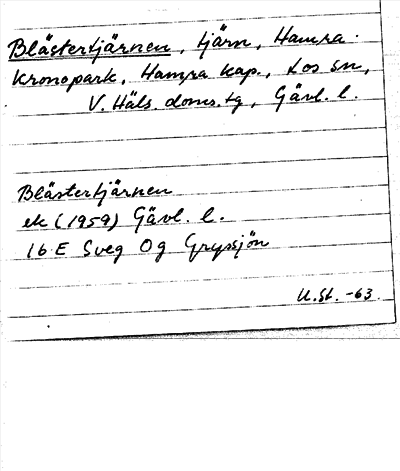 Blästertjärnen, tjärn, Hamra
kronopark, Hamra kap., Los sn,
V. Häls. doms.tg, Gävl. l.
Blästertjärnen
ek (1959) Gävl. l.
16 E Sveg 0g Gryssjön
U.St. -63